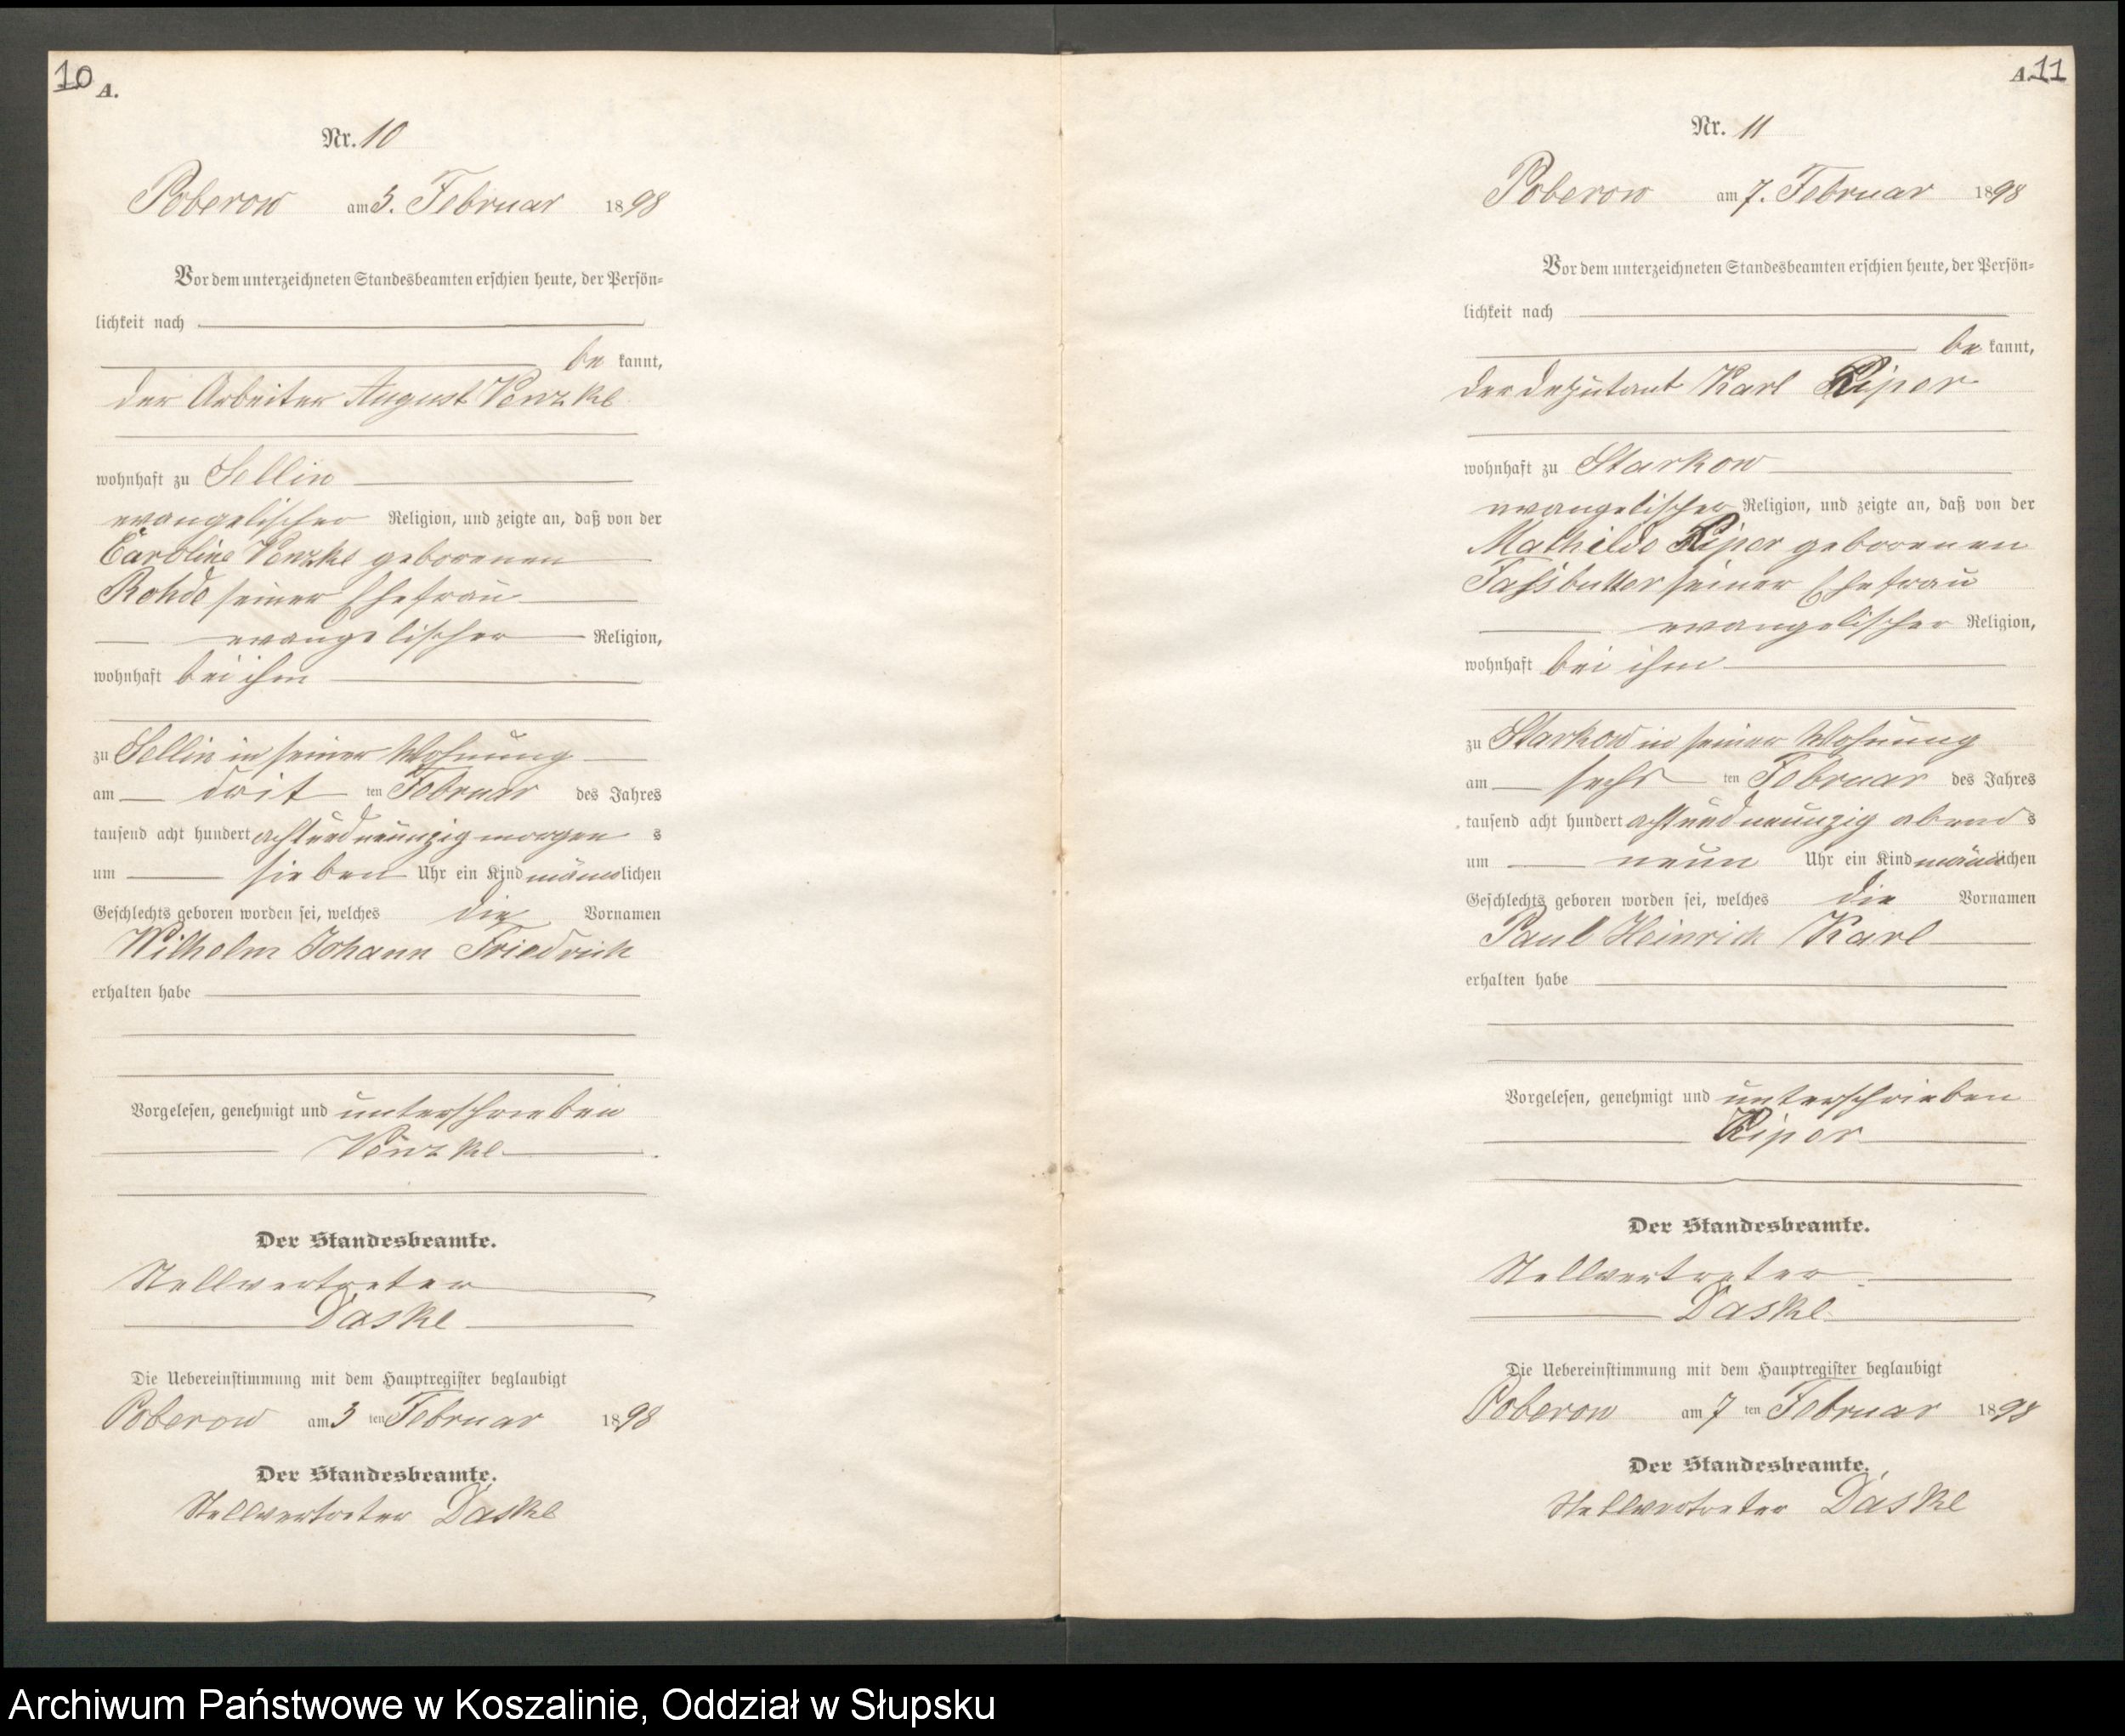 10 A.
Nr. 10
Poberow am 3. Februar 1898
Vor dem unterzeichneten Standesbeamten erschien heute, der Persön-
lichkeit nach
be kannt,
der Arbeiter August Venzke
wohnhaft zu Sellin
evangelischer Religion, und zeigte an, daß von der
Caroline Venzke geborenen
Rohde seiner Ehefrau
evangelischer Religion,
wohnhaft bei ihm
zu Sellin in seiner Wohnung
am drit ten Februar des Jahres
tausend acht hundert achtundneunzig morgen s
um sieben Uhr ein Kind männlichen
Geschlechts geboren worden sei, welches die Vornamen
Wilhelm Johann Friedrich
erhalten habe
Vorgelesen, genehmigt und unterschrieben
Venzke
Der Standesbeamte.
Stellvertreter
Daske
Die Uebereinstimmung mit dem Hauptregister beglaubigt
Poberow am 3 ten Februar 1898
Der Standesbeamte.
Stellvertreter Daske
A. 11
Nr. 11
Poberow am 7. Februar 1898
Vor dem unterzeichneten Standesbeamten erschien heute, der Persön-
lichkeit nach
be kannt,
der Deputant Karl Piper
wohnhaft zu Starkow
evangelischer Religion, und zeigte an, daß von der
Mathilde Piper geborenen
seiner Ehefrau
evangelischer Religion,
wohnhaft bei ihm
zu Starkow in seiner Wohnung
am sechs ten Februar des Jahres
tausend acht hundert achtundneunzig abend s
um neun Uhr ein Kind männlichen
Geschlechts geboren worden sei, welches die Vornamen
Paul Heinrich Karl
erhalten habe
Vorgelesen, genehmigt und unterschrieben
Piper
Der Standesbeamte.
Stellvertreter
Daske
Die Uebereinstimmung mit dem Hauptregister beglaubigt
Poberow am 7 ten Februar 1898
Der Standesbeamte.
Stellvertreter Daske
Archiwum Państwowe w Koszalinie, Oddział w Słupsku